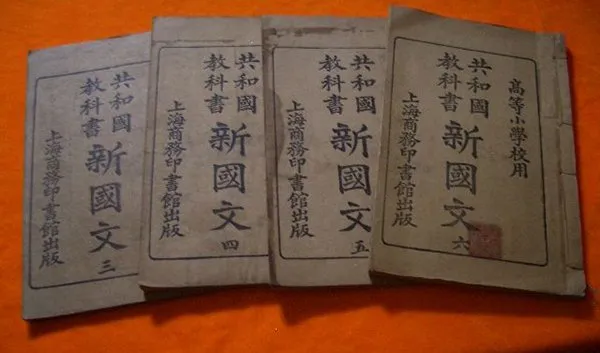 共和國
教科書
新國文
三
上海商務印書館出版
共和國
教科書
新國文
四
上海商務印書館出版
共和國
教科書
新國文
五
上海商務印書館出版
高等小學校用
共和國
教科書
新國文
六
上海商務印書館出版